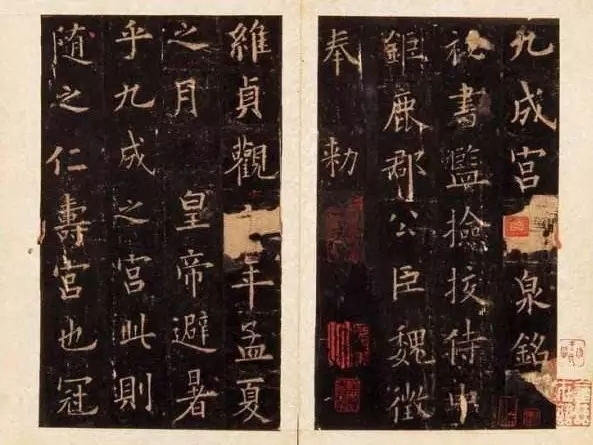 九成宮 泉銘
秘書監撿挍侍中
鉅鹿郡公臣魏徵
奉勑
維貞觀 年孟夏
之月 皇帝避暑
乎九成之宮此則
随之仁壽宮也冠